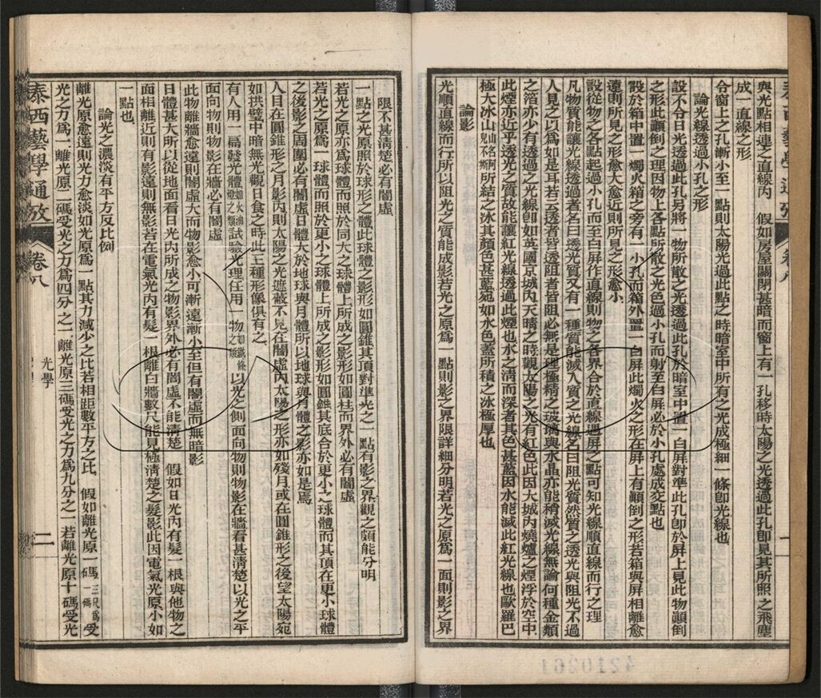 與光點相連之直線內　假如房屋關閉甚暗而窗上有一孔移時太陽之光透過此孔卽見其所照之飛塵
成一直線之形
令窗上之孔漸小至一點則太陽光過此點之時暗室中所有之光成極細一條卽光線也
論光線透過小孔之形
設不令日光透過此孔另將一物所散之光透過此孔於暗室中置一白屏對準此孔卽於屏上見此物顚倒
之形此顚倒之理因物上各點所散之光色過小孔而射至白屏必於小孔處成交點也
設於箱中置一燭火箱之旁有一小孔而箱外置一白屏此燭火之形在屏上有顚倒之形若箱與屏相離愈
遠則所見之形愈大愈近則所見之形愈小
設從物之各點起過小孔而至白屏作直線則物之各界合於直線遇屏之點可知光線順直線而行之理
凡物質能讓光線透過者名曰透光質又有一種質能滅入質之光線名曰阻光質然質之透光與阻光不過
人見之以爲如是耳若云透者皆透阻者皆阻必無是理極精之玻璃與水晶亦能稍滅光線無論何種金類
之箔亦少有透過之光線卽如英國京城內天晴之時觀太陽之光有紅色此因大城內燒爐之煙浮於空中
此煙亦近乎透光之質故能讓紅光線透過此煙也水之淸而深者其色甚藍因水能滅此紅光線也歐羅巴
極大冰山所結之冰其顏色甚藍宛如水色蓋所積之冰極厚也
論影
光順直線而行所以阻光之質能成影若光之原爲一點則影之界限詳細分明若光之原爲一面則影之界
限不甚淸楚必有闇虛
一點之光原照於球形之體此球體之影形如圓錐其頂對準光之一點有影之界觀之頗能分明
若光之原亦爲球體而照於同大之球體上所成之影形如圓柱而界外必有闇虛
若光之原爲一球體而照於更小之球體上所成之影形如圓錐其底合於更小之球體而其頂在更小球體
之後影之周圍必有闇虛日體大於地球與月體所以地球與月體之影亦如是焉
人目在圓錐形之月影內則太陽之光遮蔽不見在闇虛內太陽之形亦如殘月或在圓錐形之後望太陽宛
如拱璧中暗無光觀日食之時此三種形像俱有之
有人用一扁發光體試驗光理任用一物以光之側面向物則物影在牆看甚淸楚以光之平
面向物則物影在牆必有闇虛
此物離牆愈遠則闇虛大而物影愈小可漸遠漸小至但有闇虛而無暗影
日體甚大所以從地面看日光內所成之物影界外必有闇虛不能淸楚　假如日光內有髮一根與他物之
面相離近則有影遠則無影若在電氣光內有髮一根離白牆數尺能見極淸楚之髮影此因電氣光原小如
一點也
論光之濃淡有平方反比例
離光原愈遠則光力愈淡如光原爲一點其力減少之比若相距數平方之比　假如離光原一碼三尺爲一碼受
光之力爲一離光原二碼受光之力爲四分之一離光原三碼受光之力爲九分之一若離光原十碼受光
泰西藝學通攷
卷八
光學
二
4210261